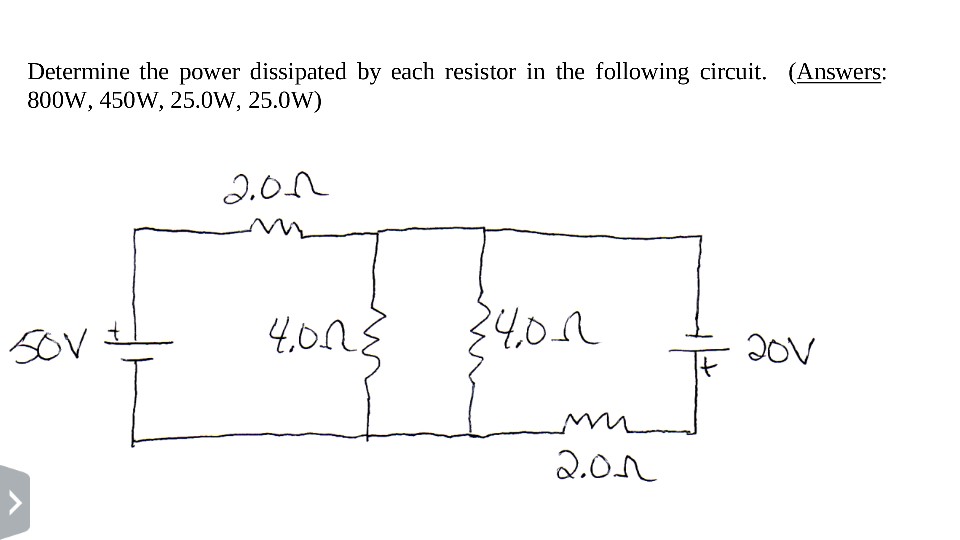 Determine the power dissipated by each resistor in the following circuit. (Answers:
800W, 450W, 25.0W, 25.0W)
2.0Ω
50V +
4.0Ω
4.0Ω
20V
+
2.0Ω